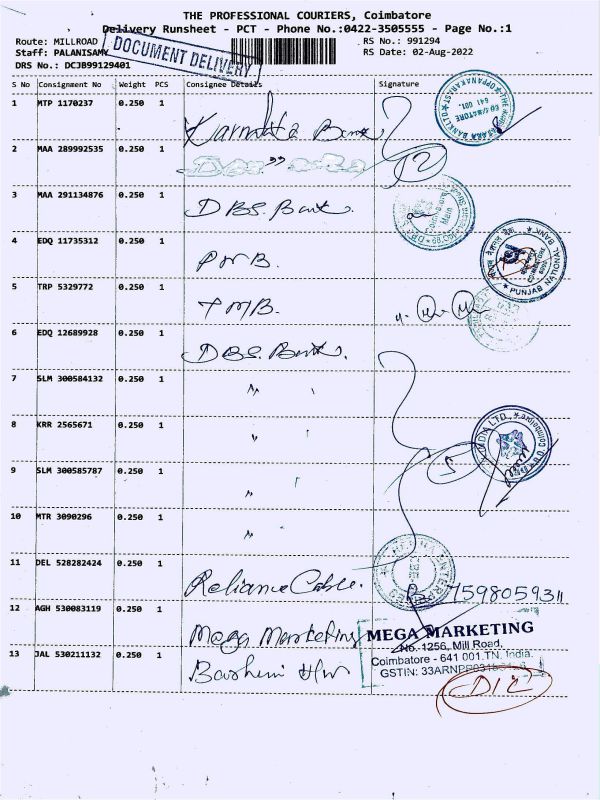 THE PROFESSIONAL COURIERS, Coimbatore
Delivery Runsheet - PCT - Phone No.:0422-3505555 - Page No.:1
Route: MILLROAD
RS No.: 991294
Staff: PALANISAMY
RS Date: 02-Aug-2022
DRS No.: DCJB99129401
DOCUMENT DELIVERY
S No Consignment No Weight PCS Consignee Details Signature
1 MTP 1170237 0.250 1 Karnataka Bank
2 MAA 289992535 0.250 1 " 
3 MAA 291134876 0.250 1 DBS. Bank.
4 EDQ 11735312 0.250 1 PNB.
PUNJAB NATIONAL BANK
5 TRP 5329772 0.250 1 TMB.
6 EDQ 12689928 0.250 1 DBS. Bank.
7 SLM 300584132 0.250 1 "
8 KRR 2565671 0.250 1 " "
9 SLM 300585787 0.250 1 "
5
10 MTR 3090296 0.250 1 "
11 DEL 528282424 0.250 1 Reliance Cable.
7598059311
12 AGH 530083119 0.250 1 Mega Marketing
MEGA MARKETING
No. 1256, Mill Road,
Coimbatore - 641 001.TN. India.
GSTIN:
13 JAL 530211132 0.250 1